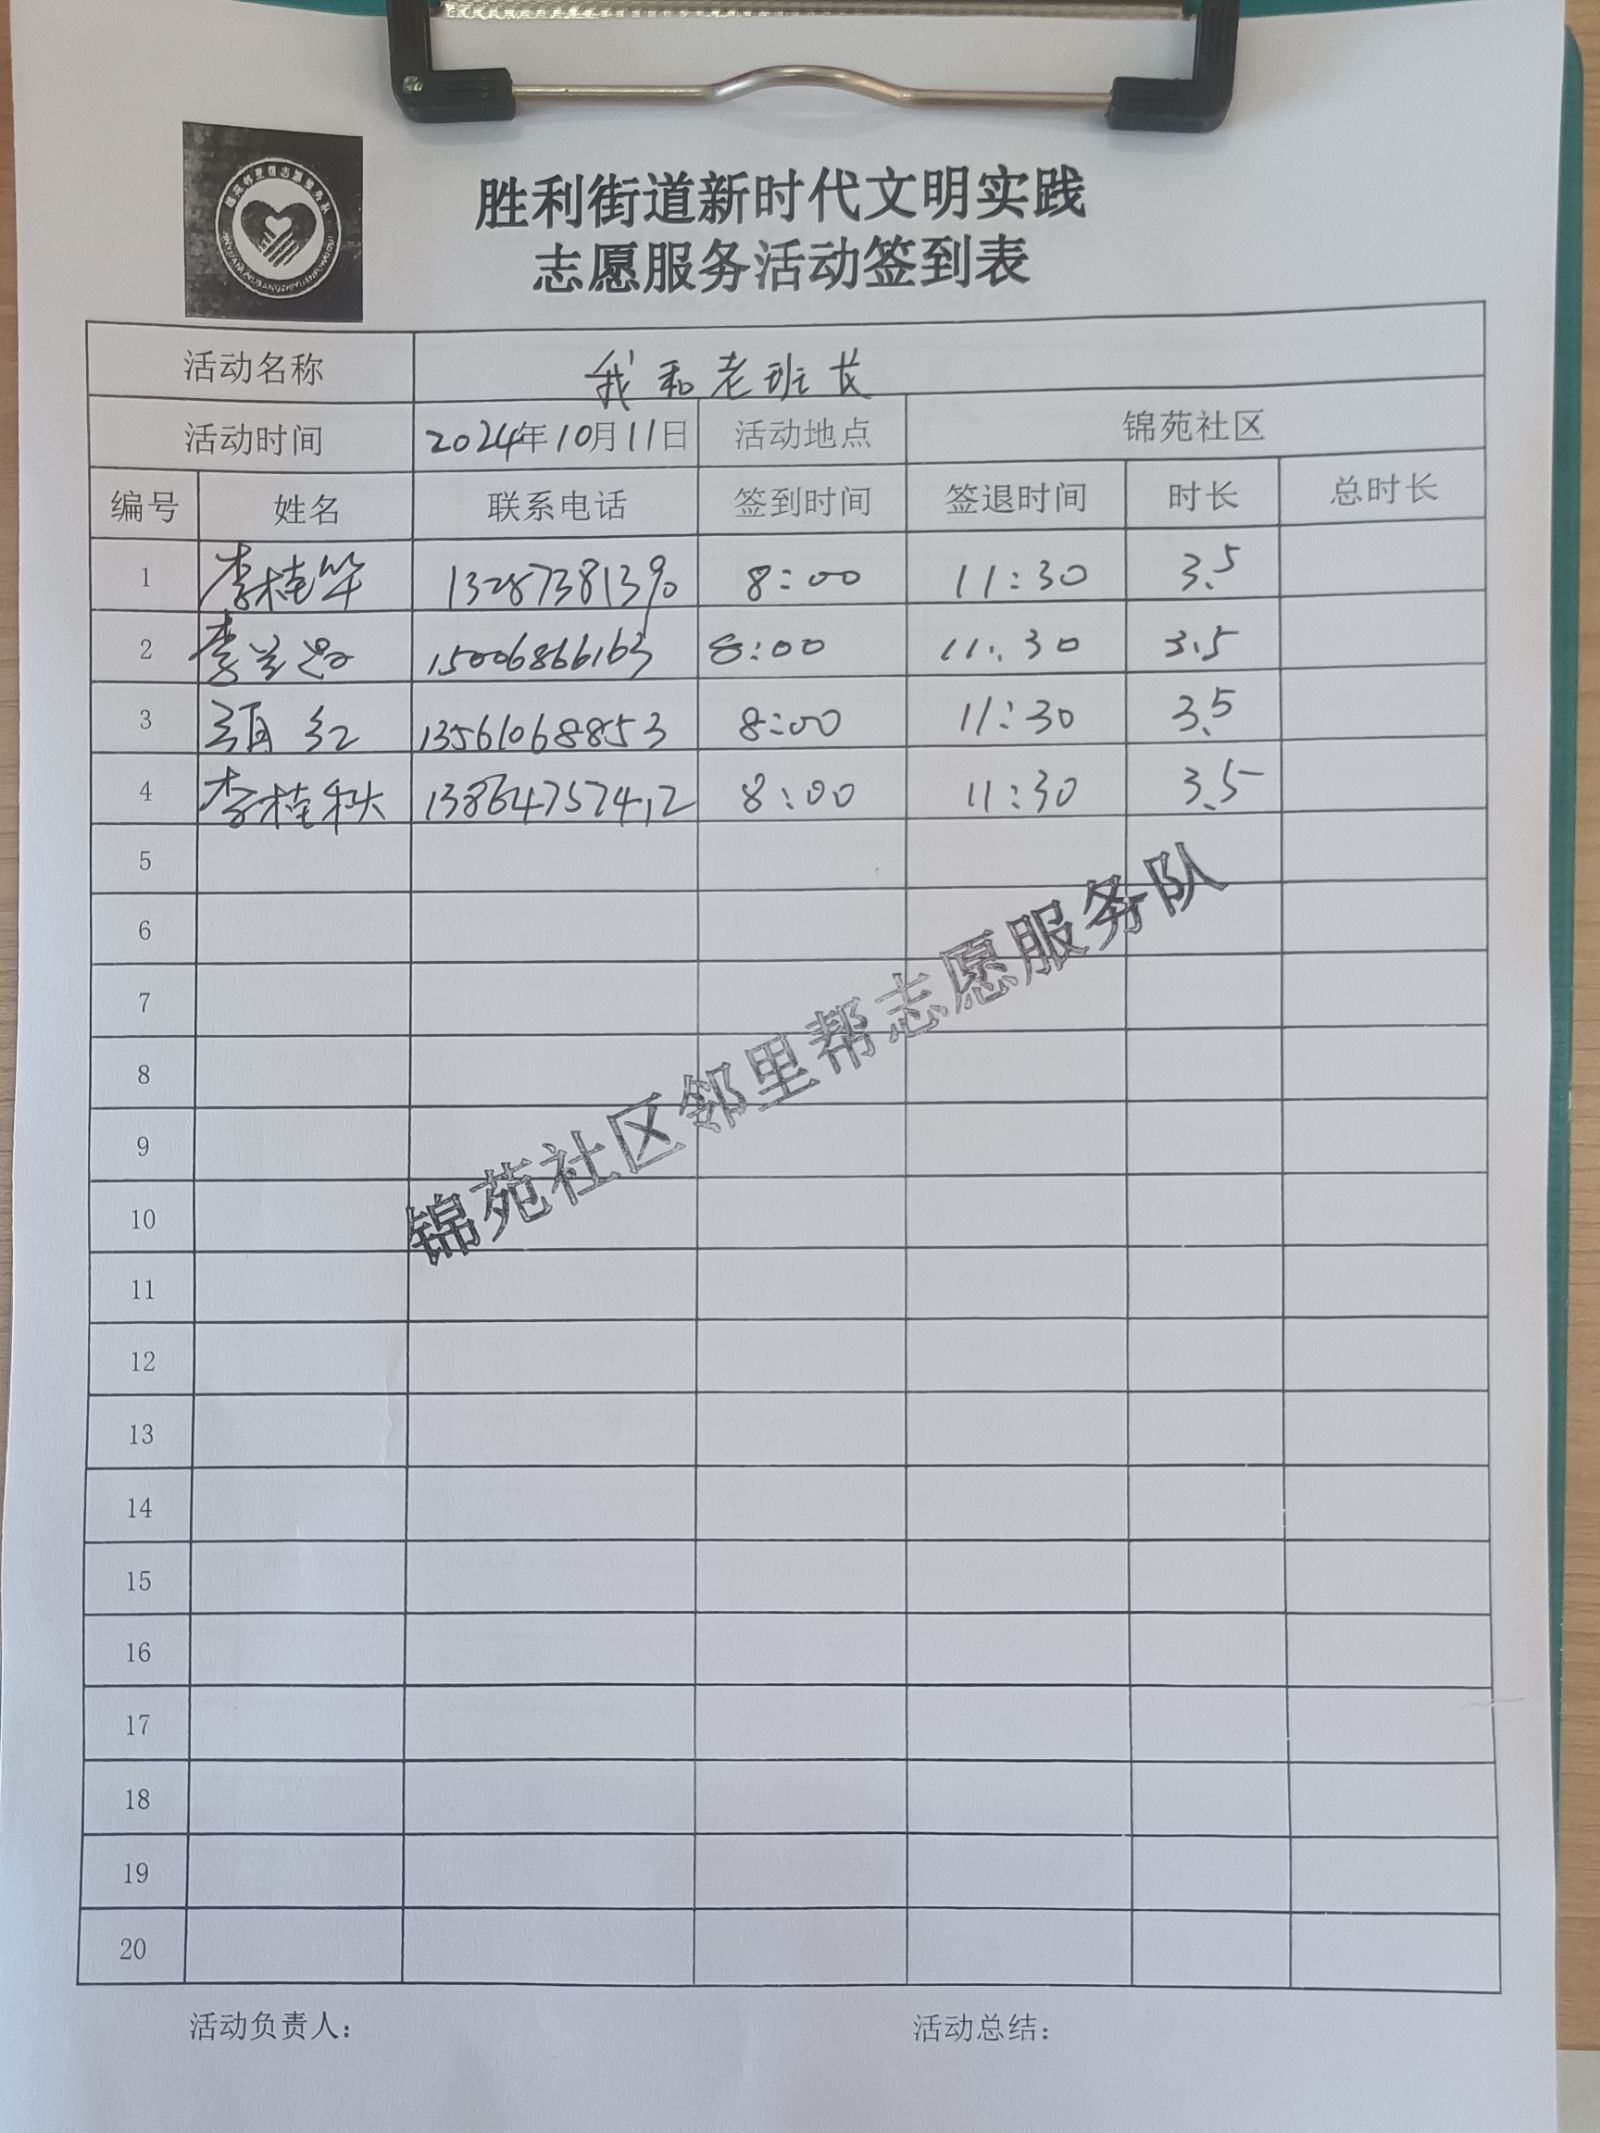 胜利街道新时代文明实践
志愿服务活动签到表
活动名称 我和老班长
活动时间 2024年10月11日 活动地点 锦苑社区
编号 姓名 联系电话 签到时间 签退时间 时长 总时长
1 李桂华 13287381390 8:00 11:30 3.5
2 李 15006866163 8:00 11:30 3.5
3 红 13561068853 8:00 11:30 3.5
4 李桂秋 13864757412 8:00 11:30 3.5
5
6
7
8
9
10
11
12
13
14
15
16
17
18
19
20
锦苑社区邻里帮志愿服务队
活动负责人：
活动总结：